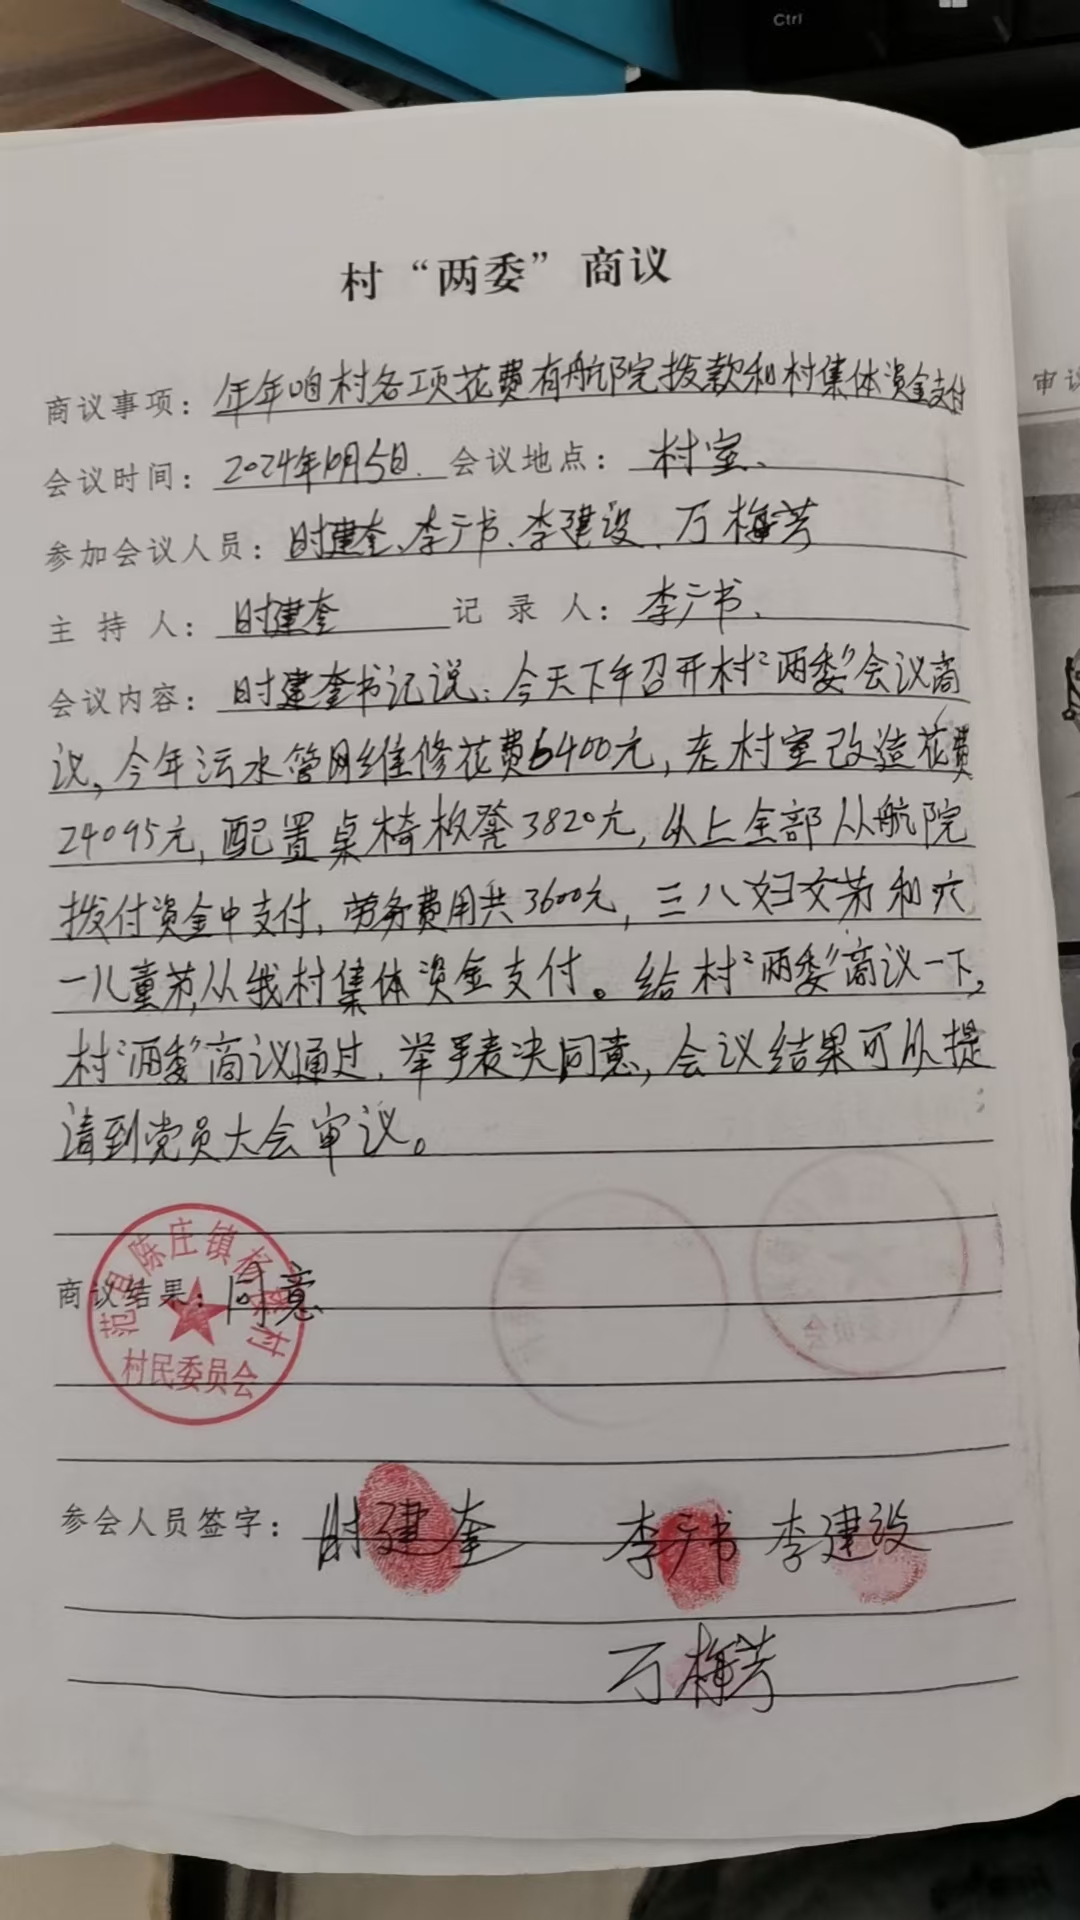 Ctrl
村“两委”商议
审议
商议事项：年年咱村各项花费有航院拨款和村集体资金支付
会议时间：2024年10月5日. 会议地点：村室、
参加会议人员：时建奎、李广书、李建设、万梅芳
主持人：时建奎 记录人：李广书、
会议内容：时建奎书记说：今天下午召开村“两委”会议商
议，今年污水管网维修花费6400元，老村室改造花费
24095元，配置桌椅板凳3820元，从上全部从航院
拨付资金中支付，劳务费用共3600元，三八妇女节和六
一儿童节，从我村集体资金支付。给村“两委”商议一下，
村“两委”商议通过，举手表决同意，会议结果可以提
请到党员大会审议。
范县陈庄镇
村
村民委员会
商议结果：同意
参会人员签字：时建奎 李广书 李建设
万梅芳